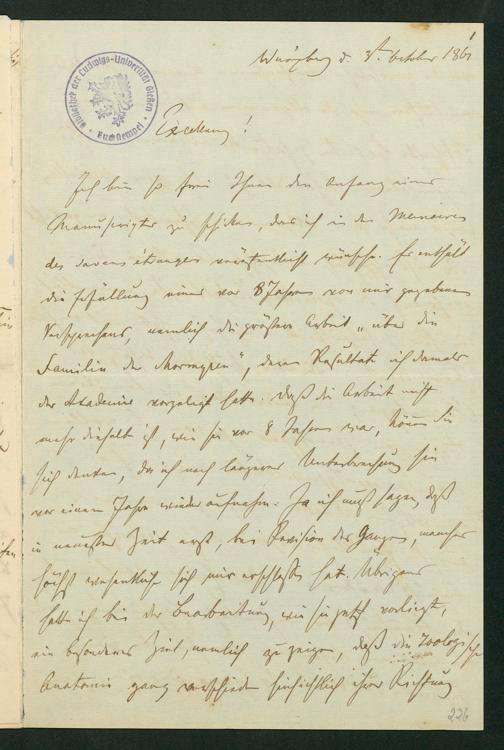 Würzburg d. 3t October 1861
1
Bibliothek der Ludwigs-Universität Gießen
Buchstempel
Excellenz!
Ich bin so frei Ihnen den Anfang eines
Manuscriptes zu schicken, das ich in den Memoires
des savans étrangers veröffentlicht wünsche. Er enthält
die Erfüllung eines vor 8 Jahren von mir gegebenen
Versprechens, nemlich die größere Arbeit „über die
Familie der Mormyren", deren Resultat ich damals
der Academie vorgelegt hatte. Daß die Arbeit nicht
mehr dieselbe ist, wie sie vor 8 Jahren war, können Sie
sich denken, da ich nach längerer Unterbrechung sie
vor einem Jahre wieder aufnahm. Ja ich muß sagen, daß
in neuester Zeit erst, bei Revision des Ganzen, manches
höchst wesentliche sich mir erschlossen hat. Übrigens
hatte ich bei der Bearbeitung, wie sie jetzt vorliegt,
ein besonderes Ziel, nemlich zu zeigen, daß die Zoologische
Anatomie ganz verschieden hinsichtlich ihrer Richtung
226